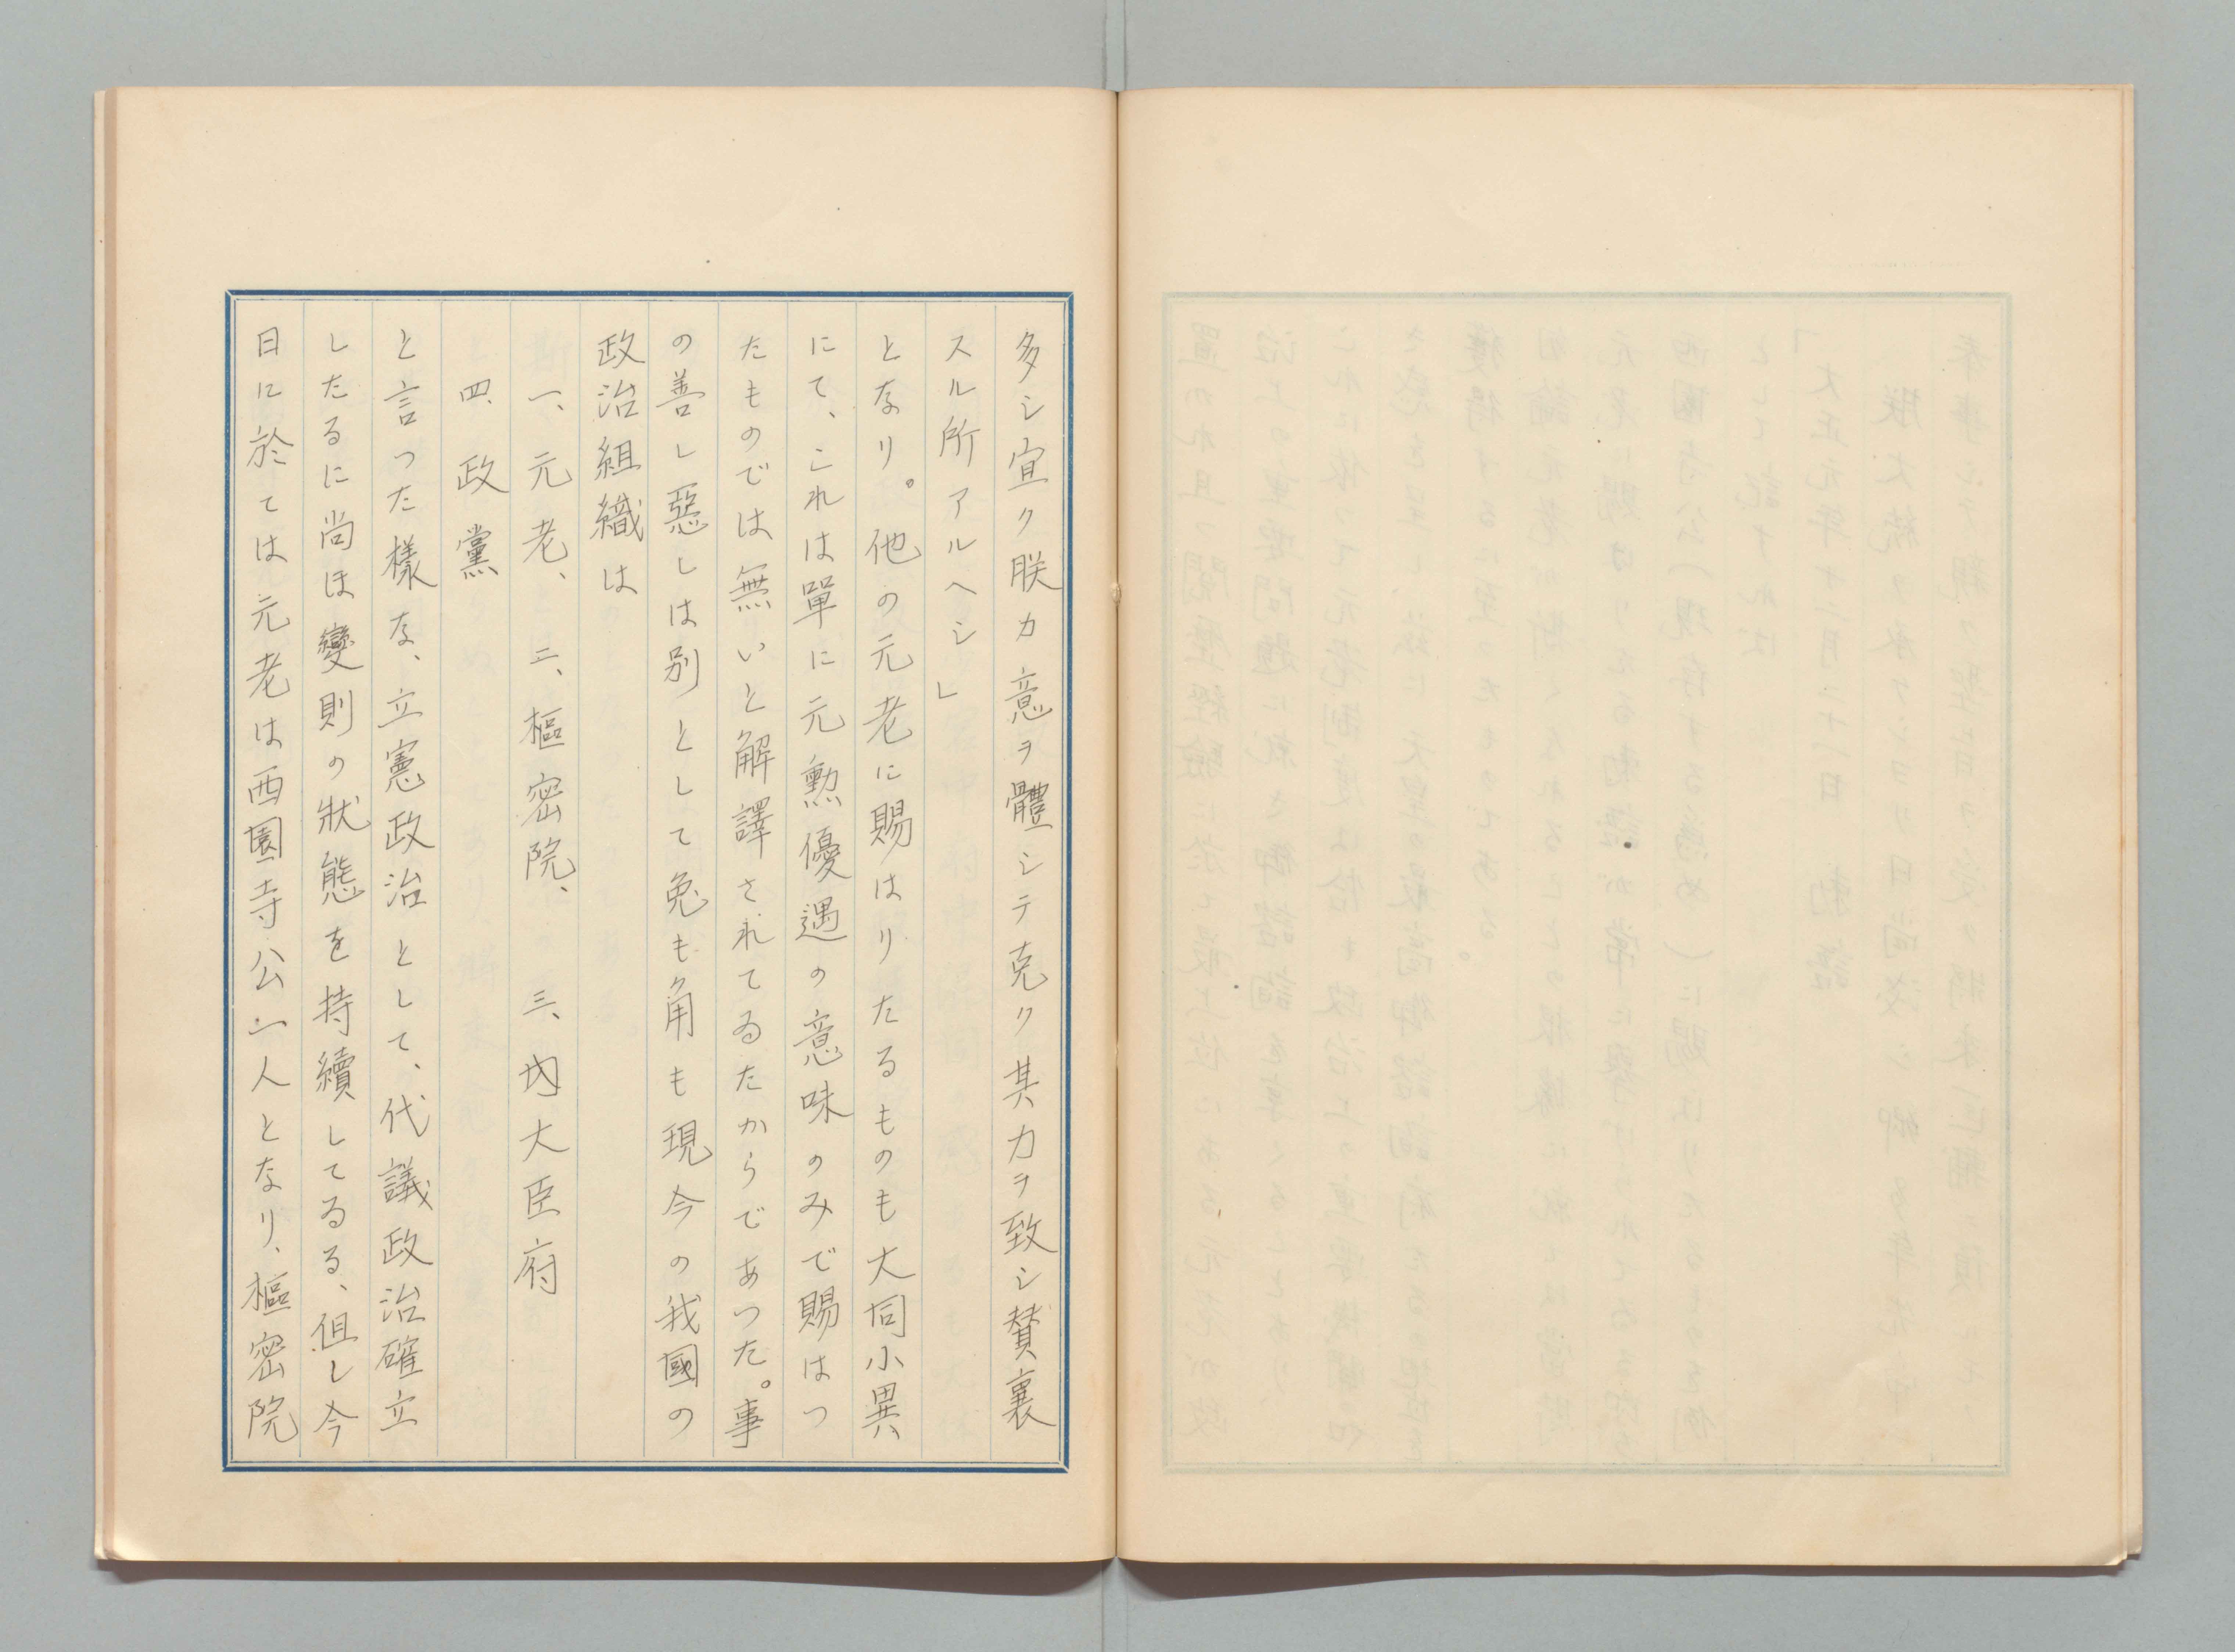 多シ宜ク朕カ意ヲ體シテ克ク其力ヲ致シ賛襄
スル所アルヘシ」
となり。他の元老に賜はりたるものも大同小異
にて、これは單に元勲優遇の意味のみで賜はつ
たものでは無いと解譯されてゐるたからであつた。事
の善し惡しは別として兎も角も現今の我國の
政治組織は
一、元老、二、樞密院、三、内大臣府
四、政黨
と言つた樣な、立憲政治として、代議政治確立
したるに尚ほ變則の狀態を持續してゐる、但し今
日に於ては元老は西園寺公一人となり、樞密院